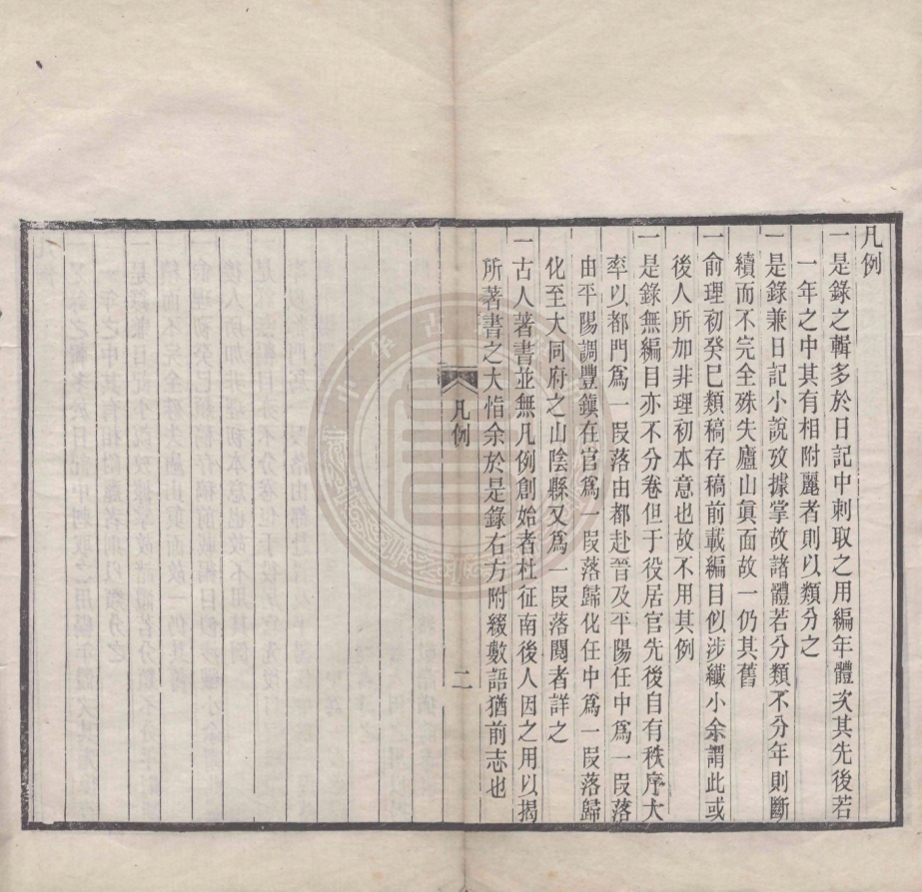 凡例
一是錄之輯多於日記中刺取之用編年體次其先後若
一年之中其有相附麗者則以類分之
一是錄兼日記小說攷據掌故諸體若分類不分年則斷
續而不完全殊失廬山眞面故一仍其舊
一俞理初癸巳類稿存稿前載編目似涉纖小余謂此或
後人所加非理初本意也故不用其例
一是錄無編目亦不分卷但于役居官先後自有秩序大
率以都門爲一段落由都赴晉及平陽任中爲一段落
由平陽調豐鎭在官爲一段落歸化任中爲一段落歸
化至大同府之山陰縣又爲一段落閱者詳之
一古人著書並無凡例創始者杜征南後人因之用以揭
所著書之大恉余於是錄右方附綴數語猶前志也
凡例
二